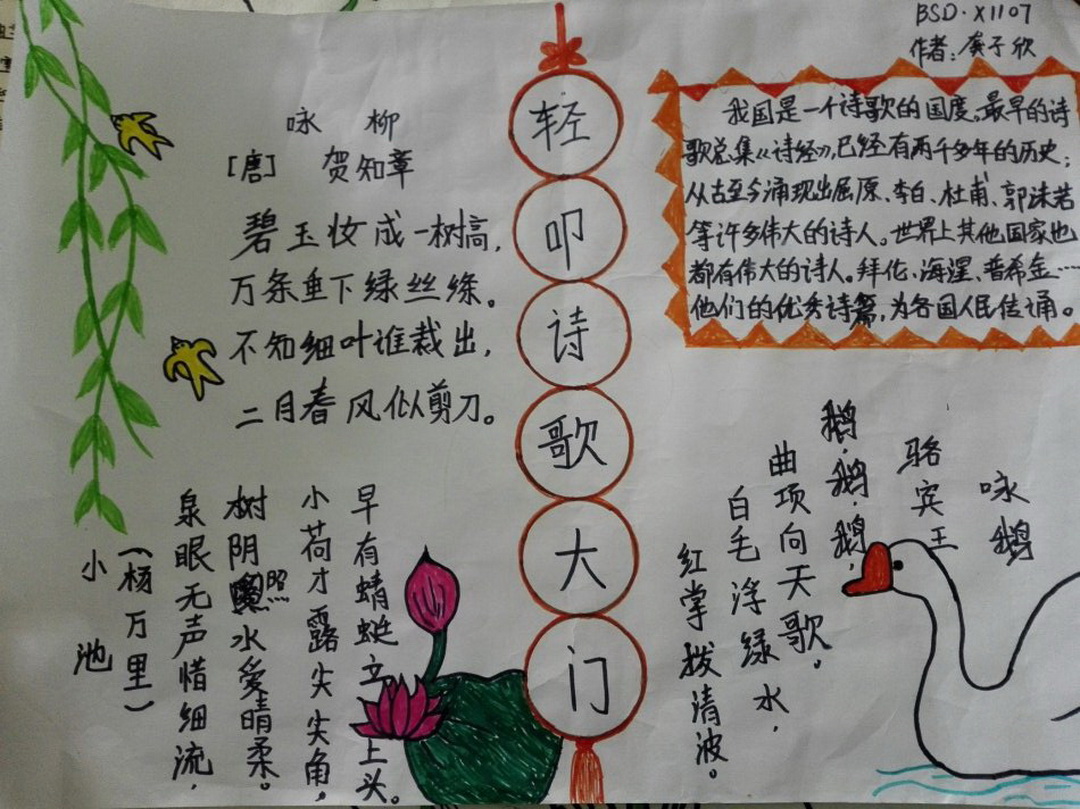 BSD·X1107
作者：龚子欣
轻叩诗歌大门
咏 柳
[唐] 贺知章
碧玉妆成一树高，
万条垂下绿丝绦。
不知细叶谁裁出，
二月春风似剪刀。
我国是一个诗歌的国度，最早的诗
歌总集《诗经》，已经有两千多年的历史；
从古至今涌现出屈原、李白、杜甫、郭沫若
等许多伟大的诗人。世界上其他国家也
都有伟大的诗人。拜伦、海涅、普希金……
他们的优秀诗篇，为各国人民传诵。
小池
（杨万里）
泉眼无声惜细流，
树阴照水爱晴柔。
小荷才露尖尖角，
早有蜻蜓立上头。
咏鹅
骆宾王
鹅，鹅，鹅，
曲项向天歌。
白毛浮绿水，
红掌拨清波。